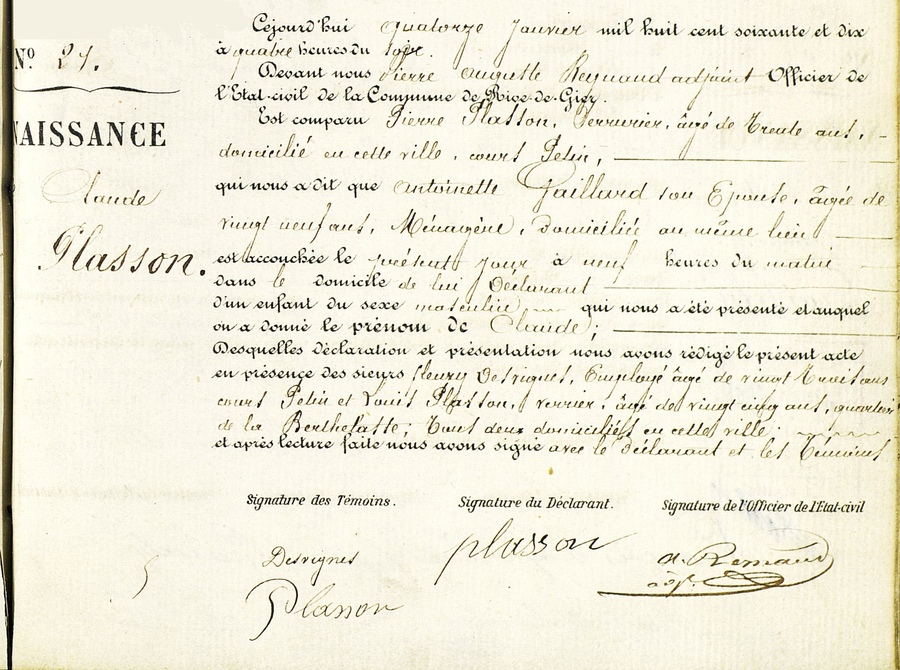 Cejourd'hui quatorze Janvier mil huit cent soixante et dix
à quatre heures du soir.
Nº 27.
Devant nous Pierre Auguste Reynaud adjoint Officier de
l'Etat-civil de la Commune de Rive-de-Gier.
NAISSANCE
Est comparu Pierre Plasson, Serrurier, âgé de trente ans,
domicilié en cette ville, cours Petin,
Claude
Plasson.
qui nous a dit que Antoinette Gaillard son Epouse, âgée de
vingt neuf ans, Ménagère, domiciliée au même lieu
est accouchée le présent jour à neuf heures du matin
dans le domicile de lui Déclarant
d'un enfant du sexe masculin qui nous a été présenté et auquel
on a donné le prénom de Claude;
Desquelles déclaration et présentation nous avons rédigé le présent acte
en présence des sieurs fleury Desvignes, Employé âgé de vingt trois ans
cours Petin et Louis Plasson, verrier, âgé de vingt cinq ans, quartier
de la Berthelasse; tous deux domiciliés en cette ville;
et après lecture faite nous avons signé avec le déclarant et les témoins
Signature des Témoins. Signature du Déclarant. Signature de l'Officier de l'Etat-civil
Desvignes
Plasson
plasson
a. Reynaud
adj.